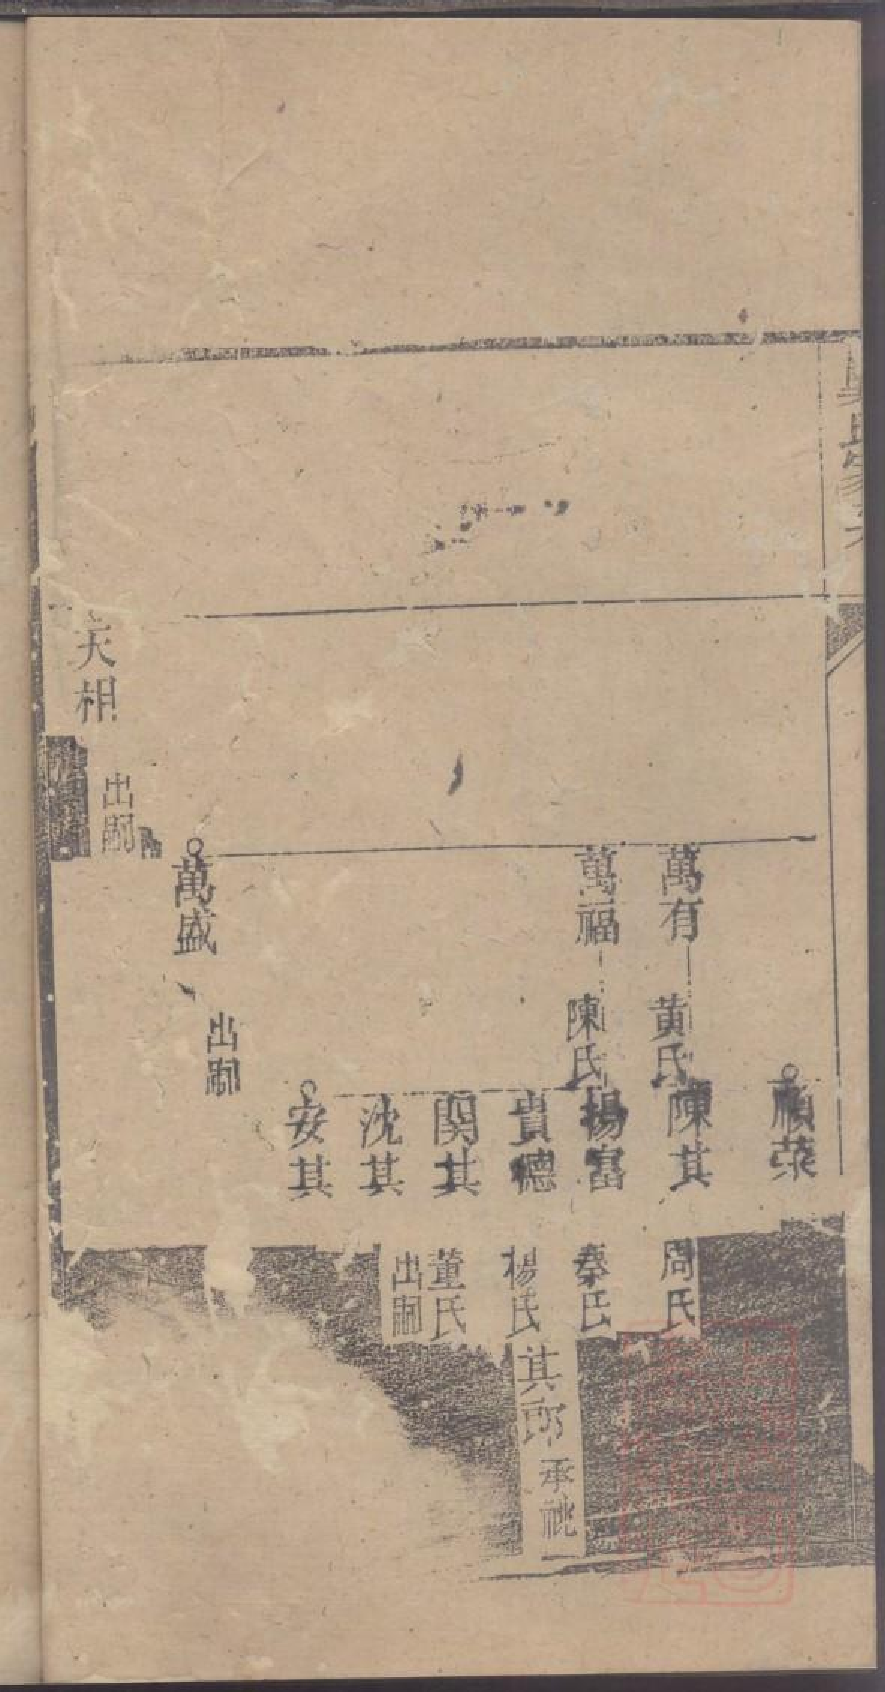 禎荣
萬有
黄氏
陳其
周氏
萬福
陳氏
楊富
秦氏
貴德
楊氏
其郎
承祧
関其
董氏
沈其
出嗣
安其
萬盛
出嗣
天相
出嗣